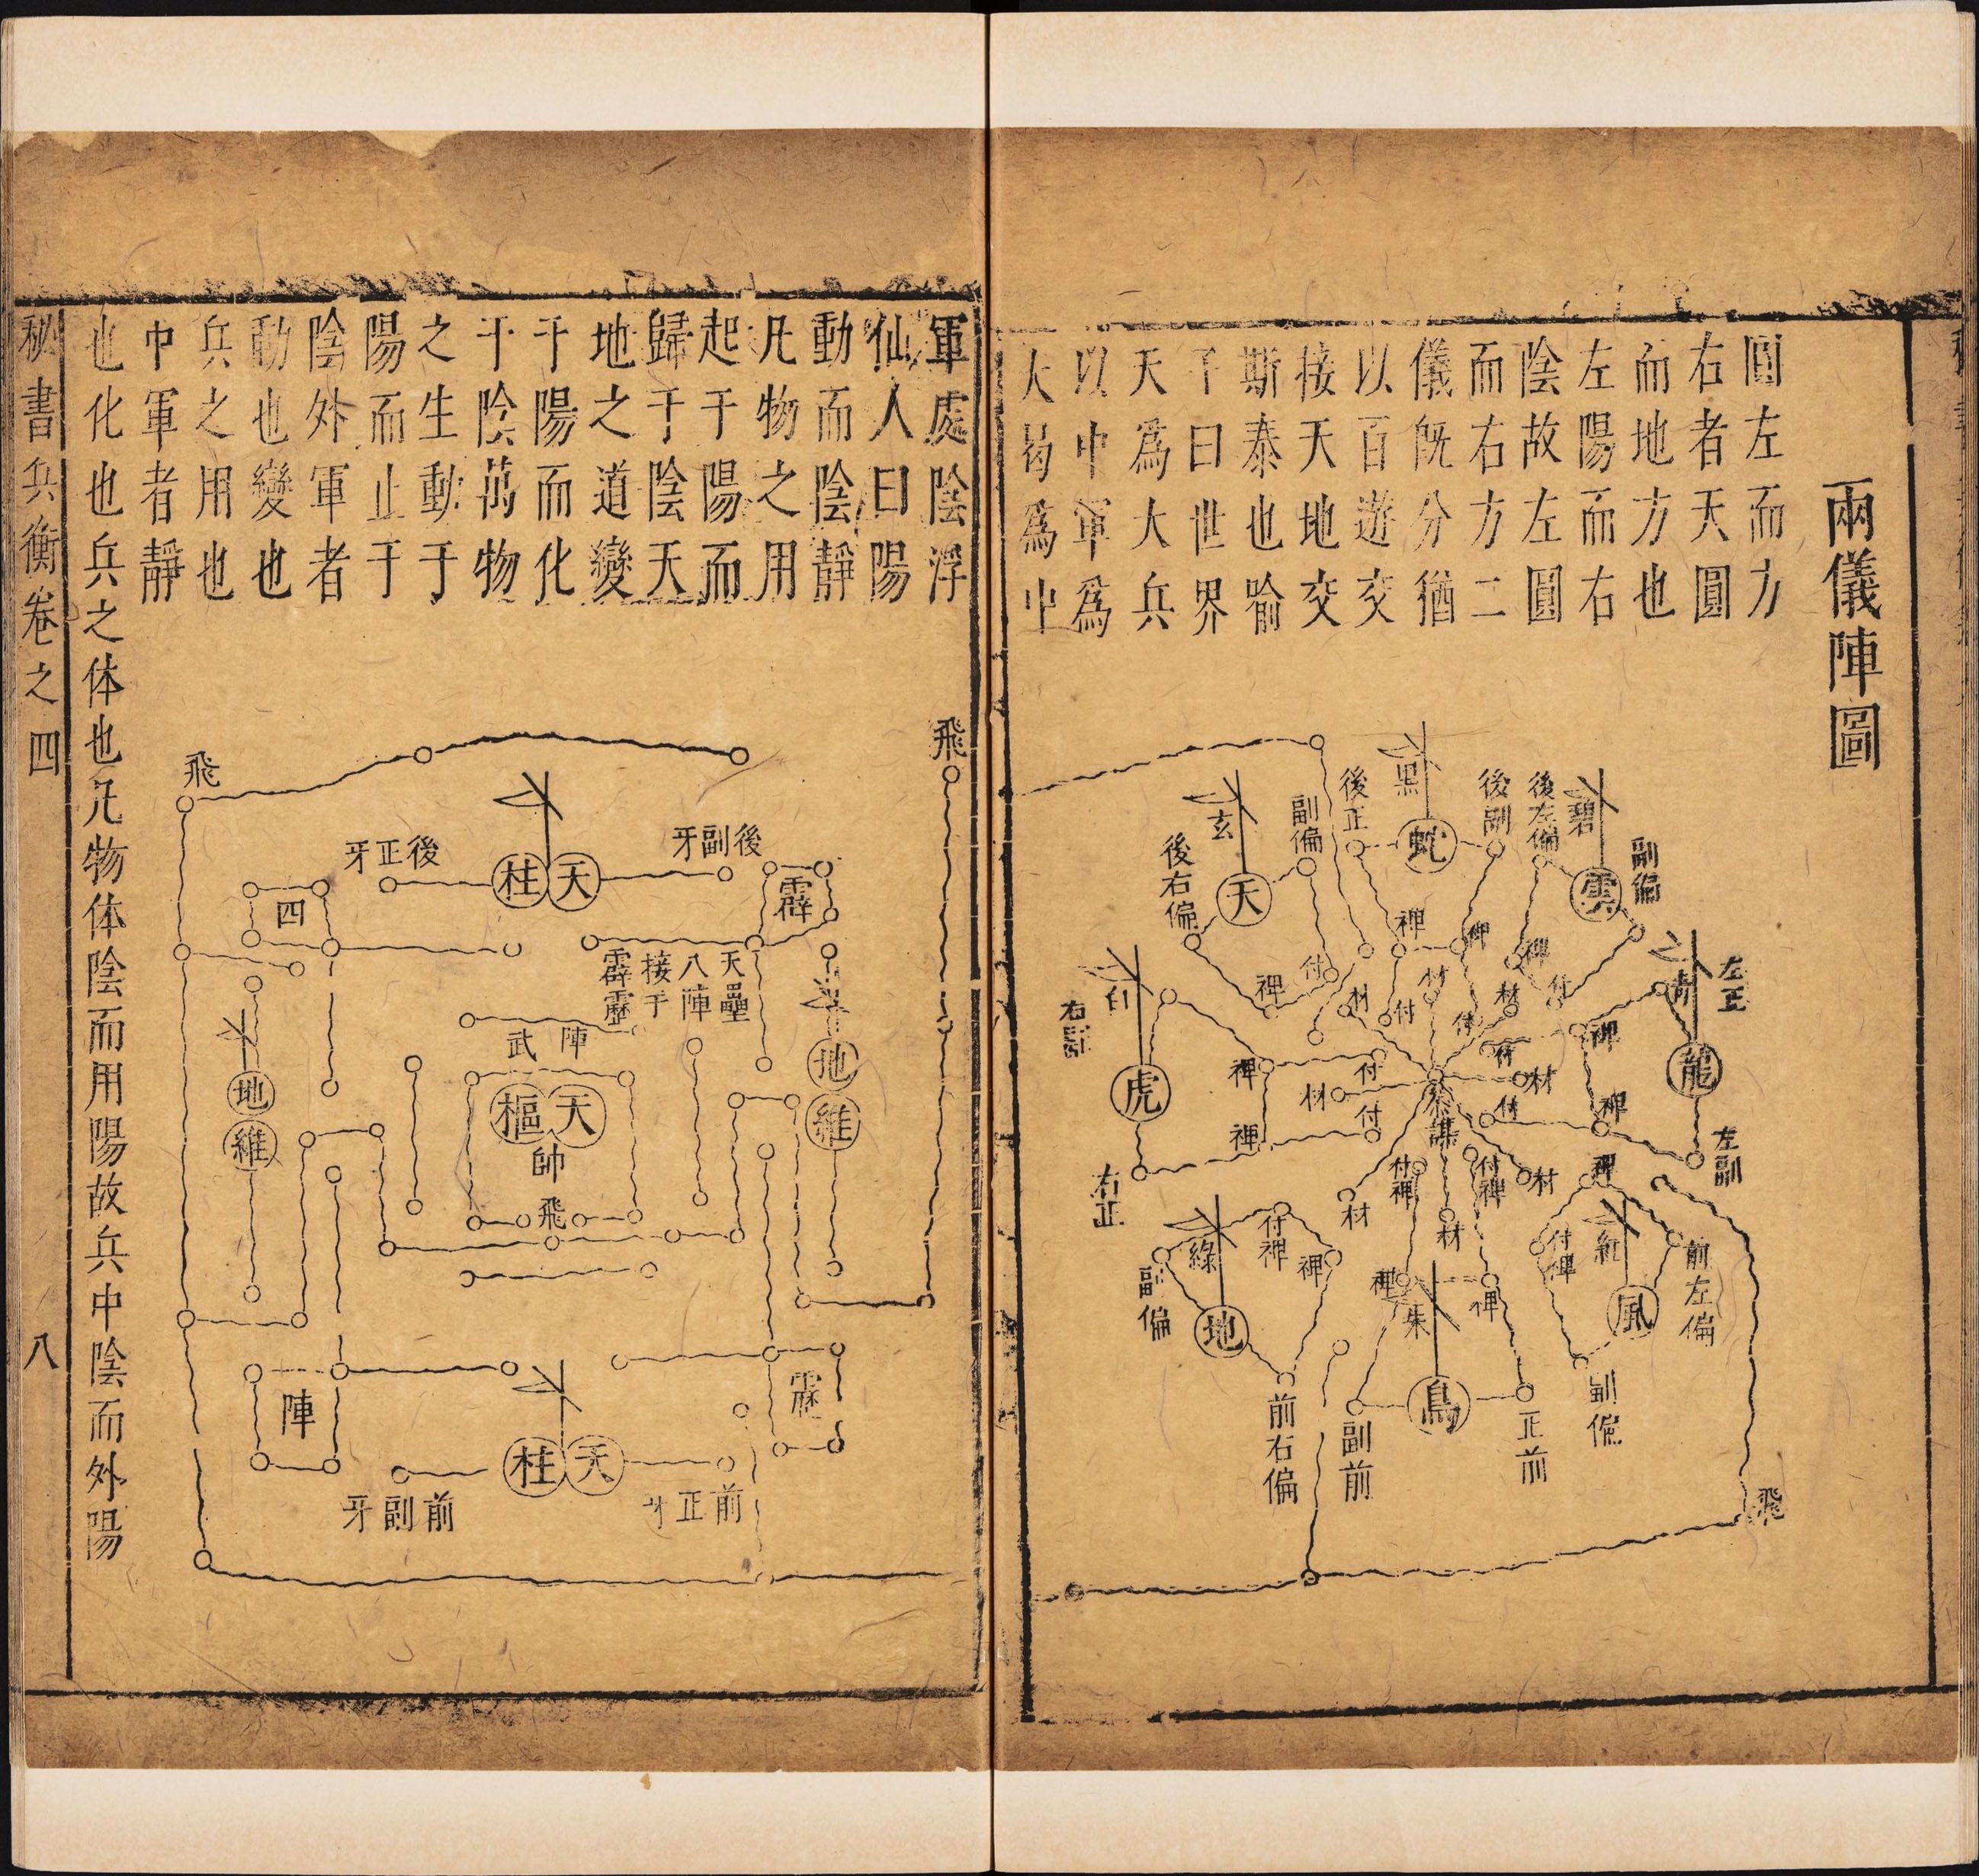 兩儀陣圖
圓左而方
右者天圓
而地方也
左陽而右
陰故左圓
而右方二
儀既分猶
以百遊交
接天地交
斯泰也喻
子曰世界
天為大兵
以中軍為
大曷為中
軍處陰浮
仙人曰陽
動而陰靜
凡物之用
起于陽而
歸于陰天
地之道變
于陽而化
于陰萬物
之生動于
陽而止于
陰外軍者
動也變也
兵之用也
中軍者靜
也化也兵之体也凡物体陰而用陽故兵中陰而外陽
秘書兵衡卷之四
八
碧
雲
副偏
後左偏
後副
黑
蛇
後正
副偏
玄
天
後右偏
左正
龍
左副
右副
虎
右正
禆
禆
付
付
材
材
付
付
材
付
材
付
禆
禆
付
材
付
禆
禆
參謀
付禆
付禆
材
材
材
禆
紅
風
前左偏
副偏
付禆
禆
禆
朱
鳥
正前
副前
綠
地
副偏
付禆
禆
前右偏
飛
飛
飛
後副牙
天柱
後正牙
霹
四
天壘
八陣
接于
霹靂
地維
地維
陣武
天樞
帥
飛
陣
靂
天柱
前正牙
前副牙